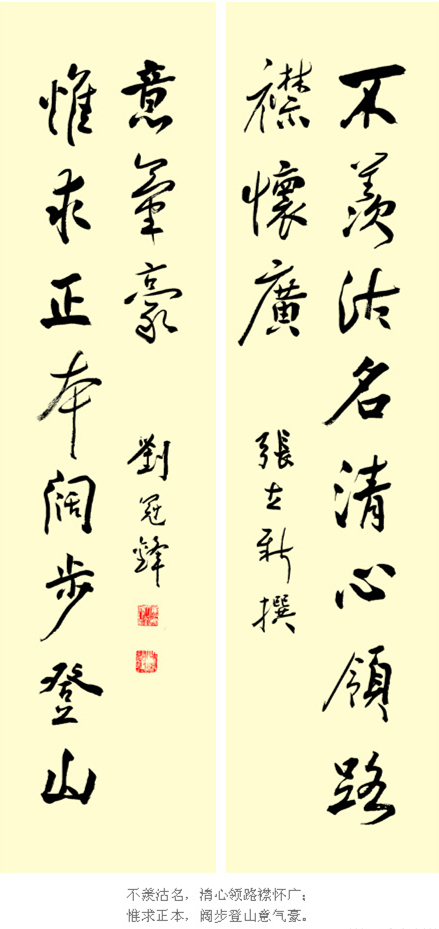 不羡沽名清心領路
襟懷廣
張立新撰
惟求正本阔步登山
意氣豪
劉冠鋒
不羡沽名，清心领路襟怀广；
惟求正本，阔步登山意气豪。